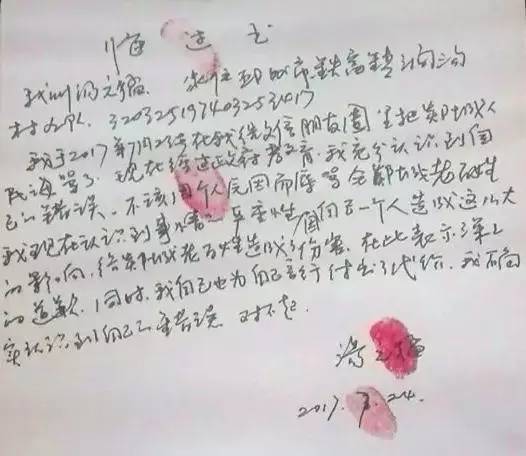 悔过书
我叫冯文瑞 家住邳州市铁富镇沟
村 队 320325197403253017
我于2017年7月23号在我微信朋友圈里把炎阝城人
民诲骂了 现在经过政府教育.我充分认识到自
己的错误.不该因个人原因而辱骂全鄯城老百姓
我现在认识到事 害 严重性 因自己一个人造成这么大
的影响,给炎阝城老百姓造成了伤害.在此表示深深
的道歉.同时.我自己也为自己言行付出了代价.我确
实认识到自己 错误 对不起.
冯文瑞
2017.7.24.